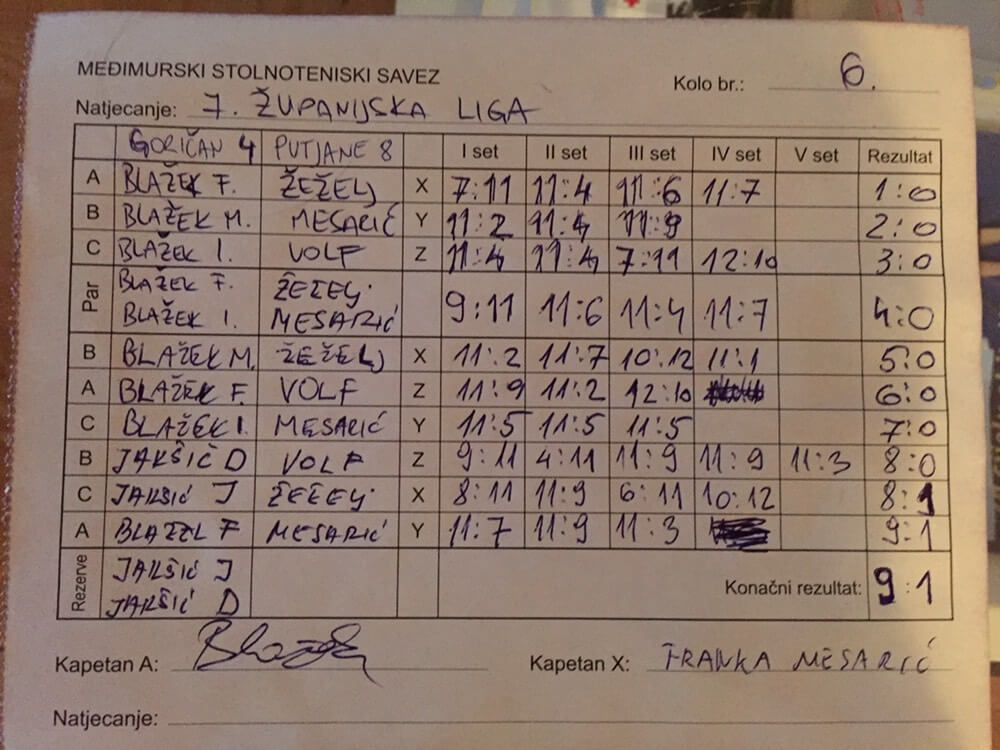 MEĐIMURSKI STOLNOTENISKI SAVEZ
Kolo br.: 6.
Natjecanje: 7. ŽUPANIJSKA LIGA
GORIČAN 4 PUTJANE 8 I set II set III set IV set V set Rezultat
A BLAŽEK F. ŽEŽELJ X 7:11 11:4 11:6 11:7 1:0
B BLAŽEK M. MESARIĆ Y 11:2 11:4 11:9 2:0
C BLAŽEK I. VOLF Z 11:4 11:4 7:11 12:10 3:0
Par BLAŽEK F. ŽEŽELJ 9:11 11:6 11:4 11:7 4:0
BLAŽEK I. MESARIĆ
B BLAŽEK M. ŽEŽELJ X 11:2 11:7 10:12 11:1 5:0
A BLAŽEK F. VOLF Z 11:9 11:2 12:10 6:0
C BLAŽEK I. MESARIĆ Y 11:5 11:5 11:5 7:0
B JAKŠIĆ D VOLF Z 9:11 4:11 11:9 11:9 11:3 8:0
C JAKŠIĆ J ŽEŽELJ X 8:11 11:9 6:11 10:12 8:1
A BLAŽEK F MESARIĆ Y 11:7 11:9 11:3 9:1
Rezerve JAKŠIĆ J
JAKŠIĆ D
Konačni rezultat: 9:1
Kapetan A: Kapetan X: FRANKA MESARIĆ
Natjecanje: